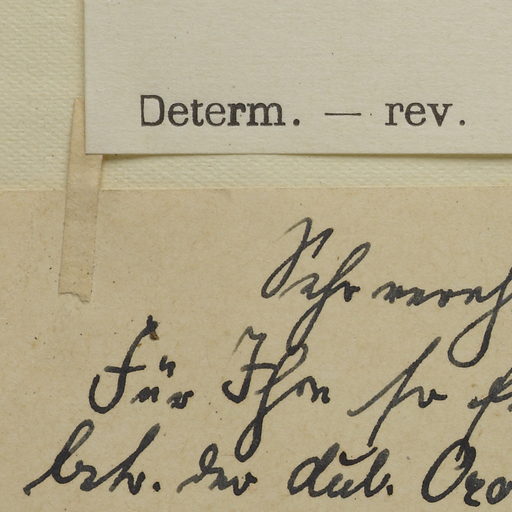 Determ. — rev.
Sehr vereh
Für Ihre so f
betr. der dub. Oro